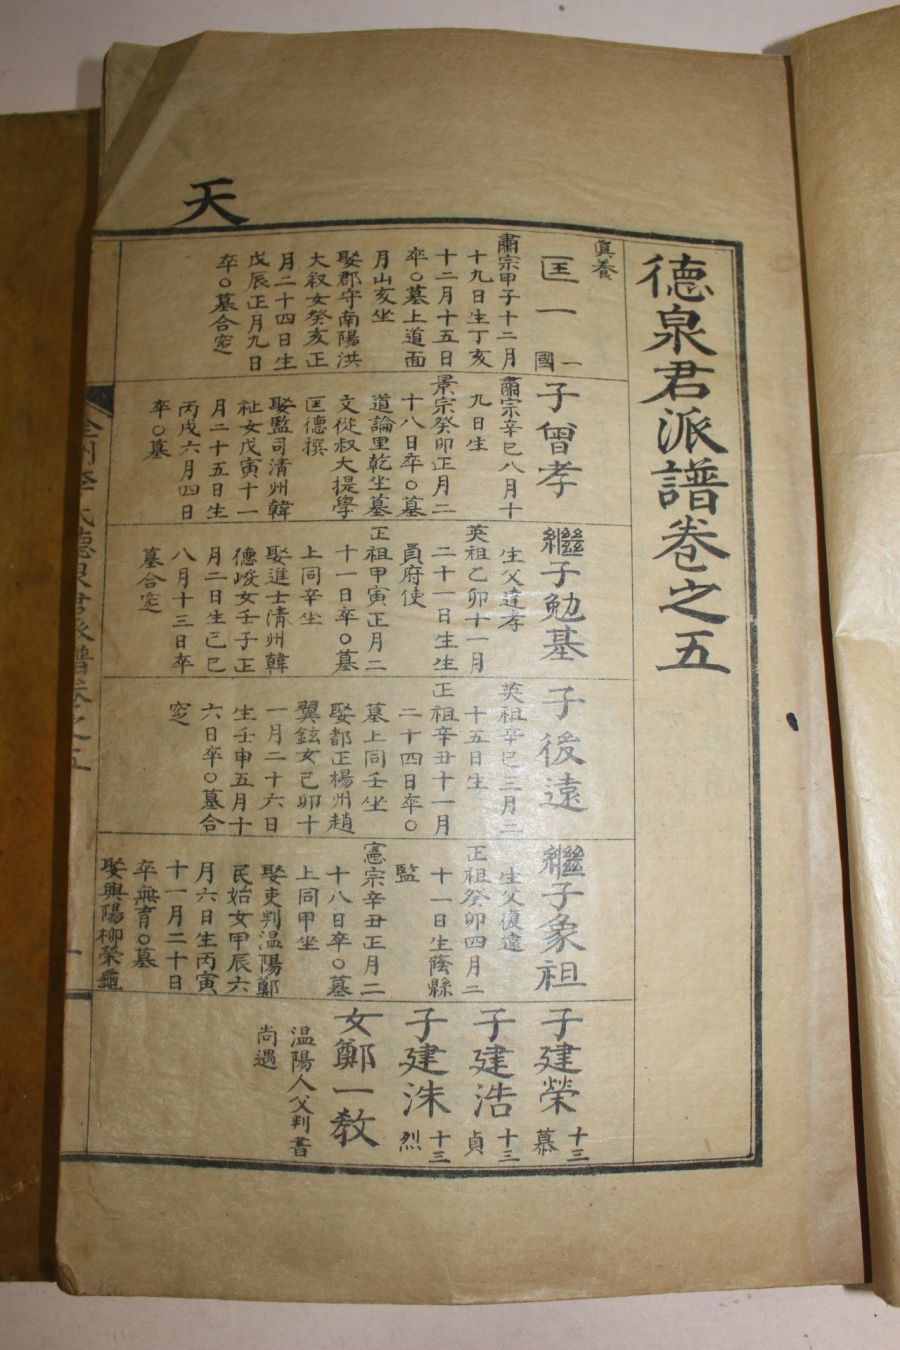 天
德泉君派譜卷之五
眞養
匡一 一國
肅宗甲子十二月
十九日生丁亥
十二月十五日
卒○墓上道面
月山亥坐
娶郡守南陽洪
大叙女癸亥正
月二十四日生
戊辰正月九日
卒○墓合窆
子曾孝
肅宗辛巳八月十
九日生
景宗癸卯正月二
十八日卒○墓
道論里乾坐墓
文從叔大提學
匡德撰
娶監司清州韓
祉女戊寅十一
月二十五日生
丙戌六月四日
卒○墓
繼子勉基
生父達孝
英祖乙卯十一月
二十一日生生
員府使
正祖甲寅正月二
十一日卒○墓
上同辛坐
娶進士清州韓
德峻女壬子正
月二日生己巳
八月十三日卒
墓合窆
子後遠
英祖辛巳三月二
十五日生
正祖辛丑十一月
二十四日卒○
墓上同壬坐
娶都正楊州趙
翼鉉女己卯十
一月二十六日
生壬申五月十
六日卒○墓合
窆
繼子象祖
生父復遠
正祖癸卯四月二
十一日生蔭縣
監
憲宗辛丑正月二
十八日卒○墓
上同甲坐
娶吏判温陽鄭
民始女甲辰六
月六日生丙寅
十一月二十日
卒無育○墓
娶興陽柳榮龜
子建榮 十三慕
子建浩 十三貞
子建洙 十三烈
女鄭一教
温陽人父判書
尚遇
全州李氏德泉君派譜卷之五
一